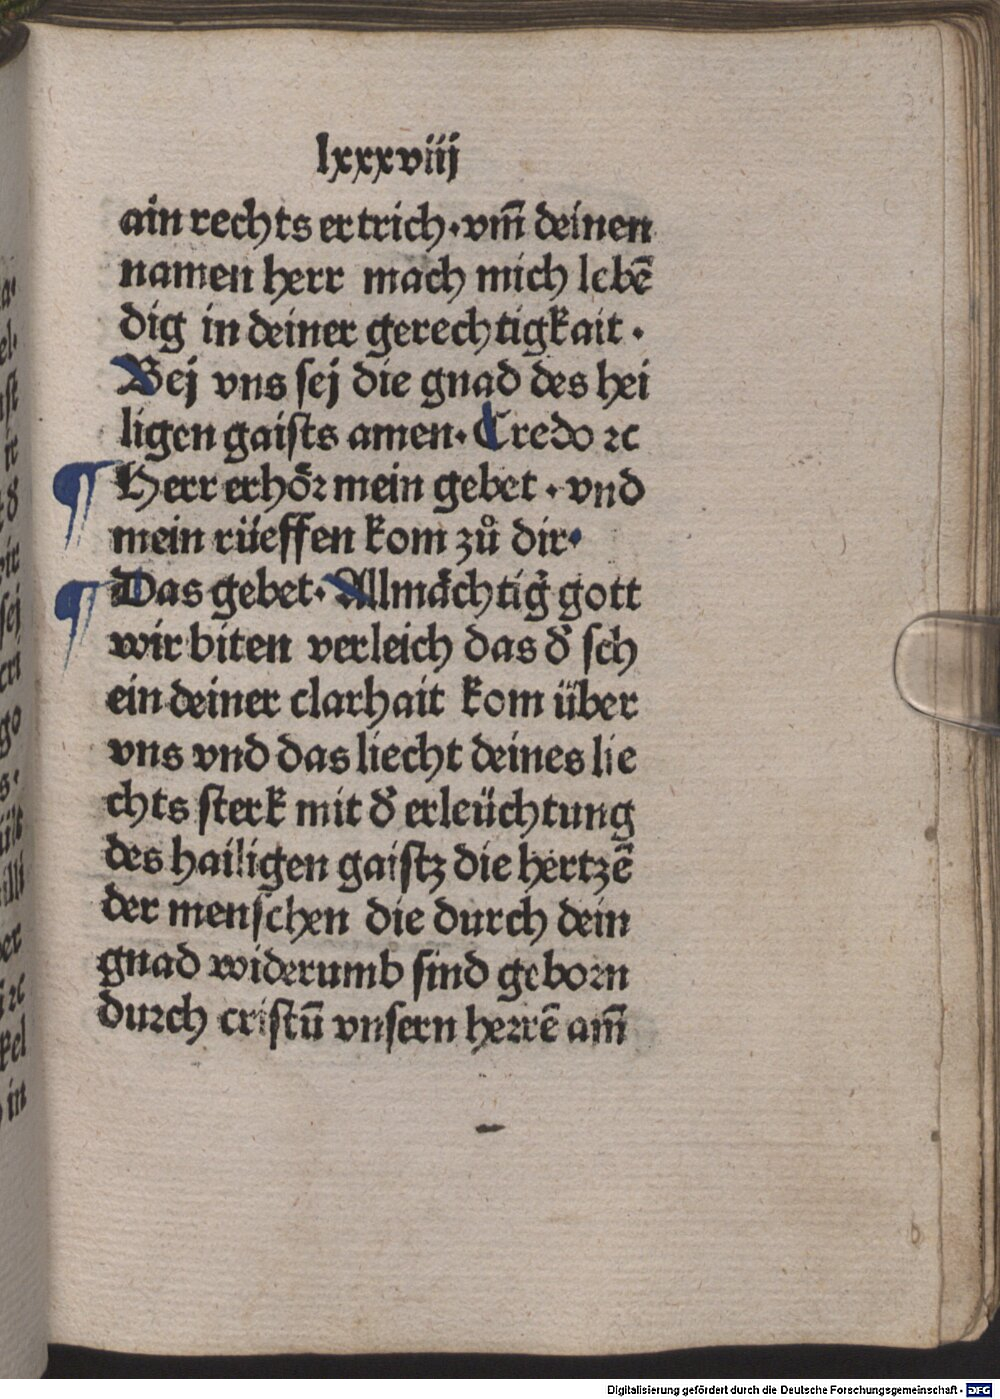 lxxxviij
ain rechts ertrich·vm̄ deinen
namen herr mach mich lebē
dig in deiner gerechtigkait·
Bej vns sej die gnad des hei
ligen gaists amen·Credo ꝛc
¶ Herr erhöꝛ mein gebet·vnd
mein rüeffen kom zů dir·
¶ Das gebet·Allmächtig̃ gott
wir biten verleich das d̛ sch
ein deiner clarhait kom über
vns vnd das liecht deines lie
chts sterk mit d̛ erleüchtung
des hailigen gaistz die hertzē
der menschen die durch dein
gnad widerumb sind geboꝛn
duꝛch cristū vnsern heꝛrē am̄
Digitalisierung gefördert durch die Deutsche Forschungsgemeinschaft - DFG